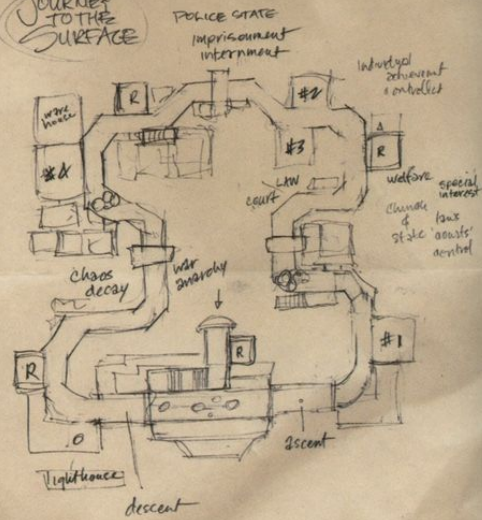 JOURNEY
TO THE
SURFACE
POLICE STATE
imprisonment
internment
Individual
achievement
controlled
ware
house
R
#2
#3
R
#4
LAW
court
welfare
special
interest
church
&
state
laws
control
chaos
decay
war
anarchy
R
R
#1
ascent
lighthouse
descent